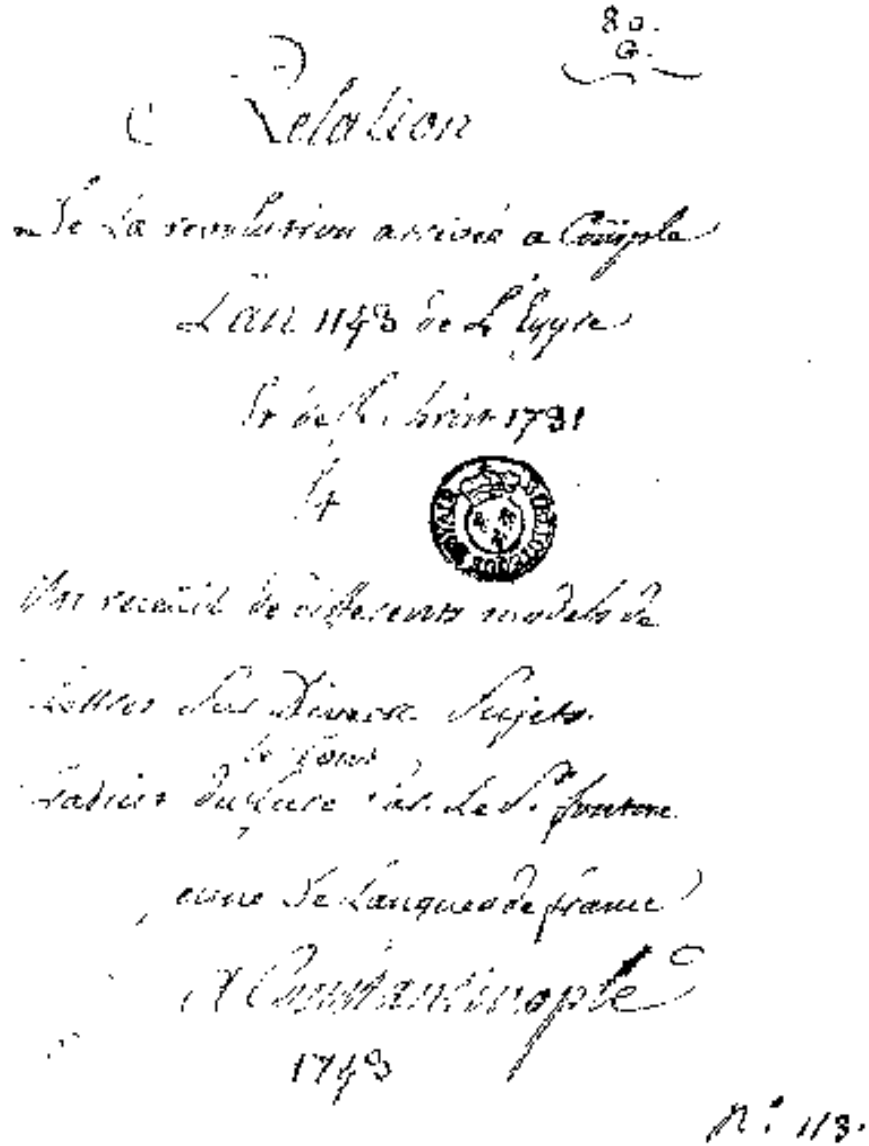 80.
G.
Relation
De La revolution arrivée a Coñple
L'an 1143 de L'Egyre
Et de J. C. 1731
Et
Un recueil de differents models de
Lettres Sur Diverse Sujets.
le tout
traduit du turc Par Le Sr. fonton
jeune De Langues de france
A Constantinople
1743
n.° 113.